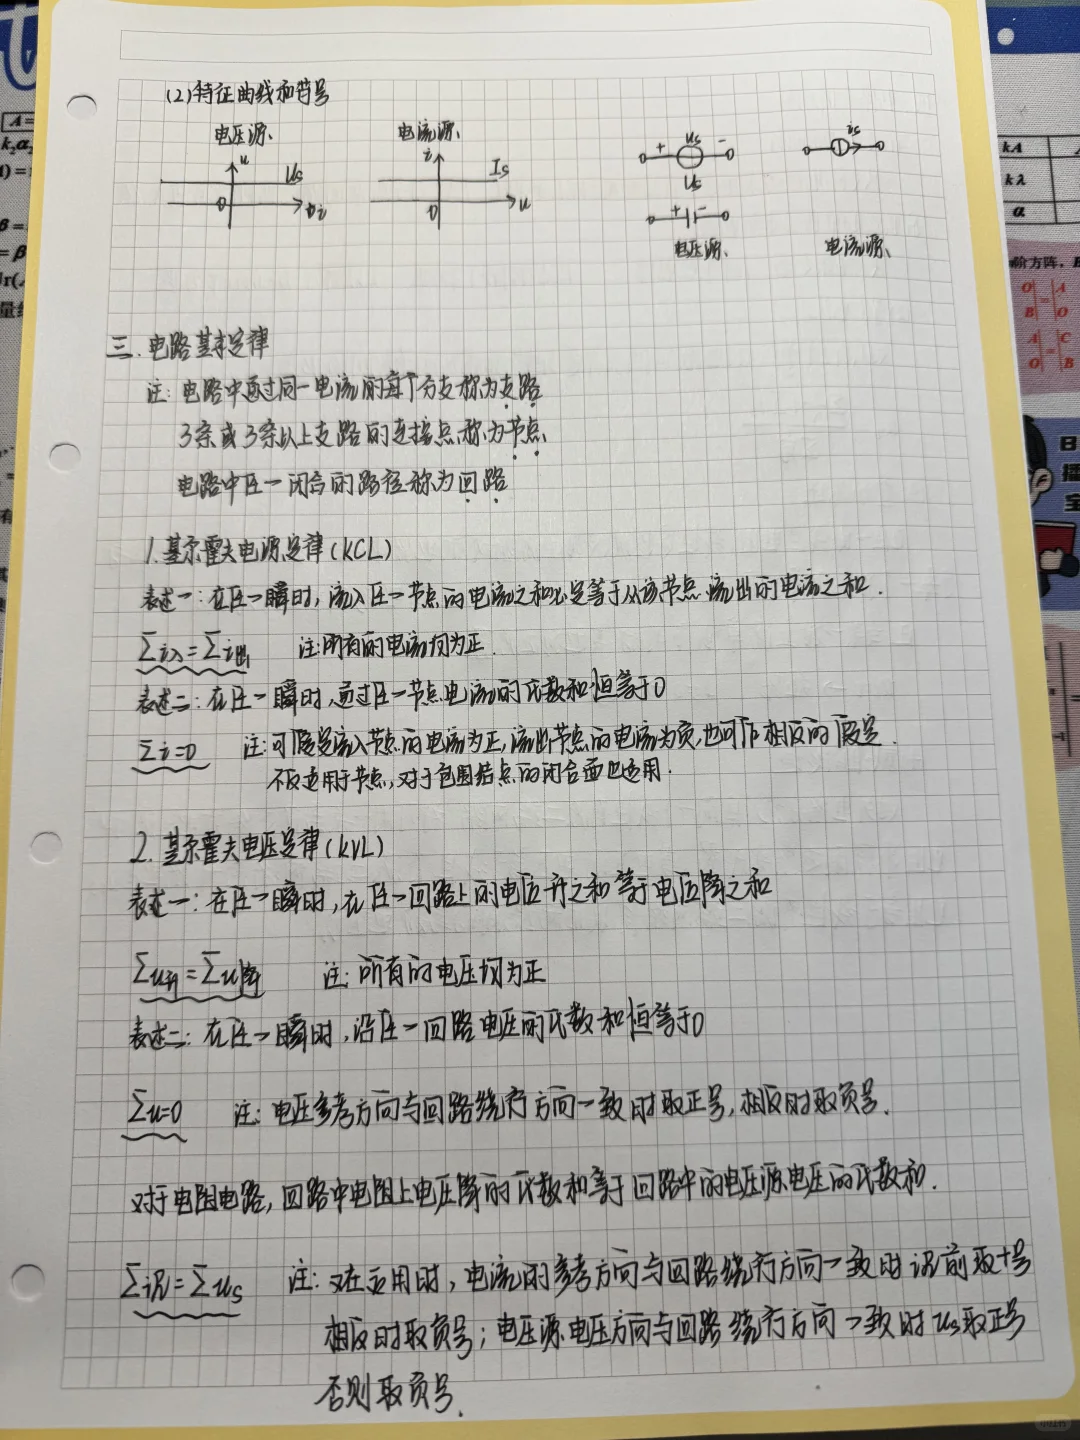 (2)特征曲线和符号
电压源、
电流源、
u
Us
0
i
i
Is
0
u
+ us -
Us
+ -
电压源、
is
电流源、
三. 电路基本定律
注: 电路中通过同一电流的每个分支称为支路
3条或3条以上支路的连接点称为节点
电路中任一闭合的路径称为回路
1.基尔霍夫电源定律(KCL)
表述一:在任一瞬时,流入任一节点的电流之和必定等于从该节点流出的电流之和.
∑i入=∑i出 注:所有的电流均为正.
表述二:在任一瞬时,通过任一节点电流的代数和恒等于0
∑i=0 注:可假定流入节点的电流为正,流出节点的电流为负,也可作相反的假定.
不仅适用于节点,对于包围结点的闭合面也适用.
2.基尔霍夫电压定律(KVL)
表述一:在任一瞬时,在任一回路上的电位升之和等于电位降之和
∑u升=∑u降 注:所有的电压均为正
表述二:在任一瞬时,沿任一回路电压的代数和恒等于0
∑u=0 注:电压参考方向与回路绕行方向一致时取正号,相反时取负号.
对于电阻电路,回路中电阻上电压降的代数和等于回路中的电压源电压的代数和.
∑iR=∑us 注:对在应用时,电流的参考方向与回路绕行方向一致时iR前取+号
相反时取负号;电压源电压方向与回路绕行方向一致时us取正号
否则取负号.
kA
kλ
α
阶方阵,